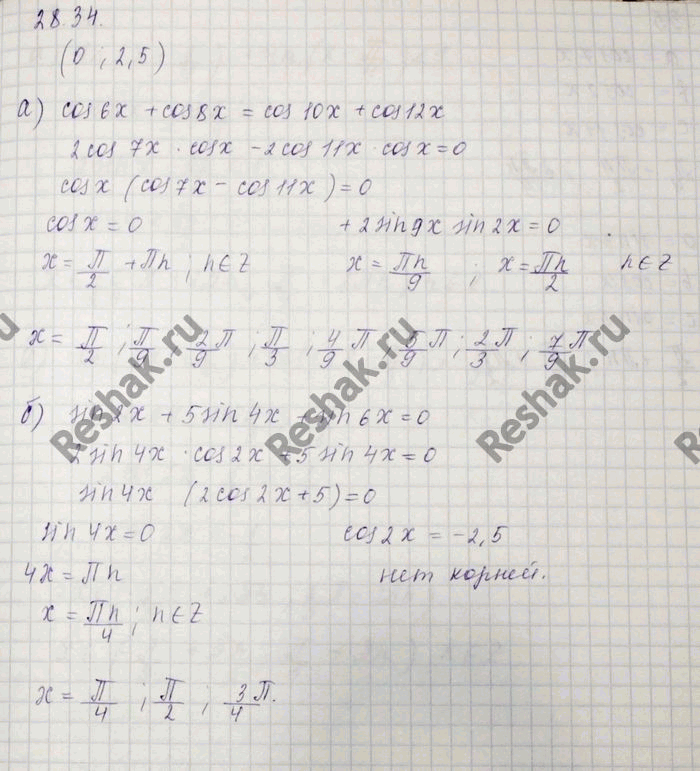 28.34.
(0 ; 2,5)
а) cos 6x + cos 8x = cos 10x + cos 12x
2 cos 7x · cos x - 2 cos 11x · cos x = 0
cos x (cos 7x - cos 11x) = 0
cos x = 0 + 2 sin 9x sin 2x = 0
x = П/2 + Пn ; n ∈ Z x = Пn/9 ; x = Пn/2 n ∈ Z
x = П/2 ; П/9 ; 2/9 П ; П/3 ; 4/9 П ; 5/9 П ; 2/3 П ; 7/9 П
б) sin 2x + 5 sin 4x + sin 6x = 0
2 sin 4x · cos 2x + 5 sin 4x = 0
sin 4x (2 cos 2x + 5) = 0
sin 4x = 0 cos 2x = -2,5
4x = Пn нет корней.
x = Пn/4 ; n ∈ Z
x = П/4 ; П/2 ; 3/4 П.
Reshak.ru
Reshak.ru
Reshak.ru